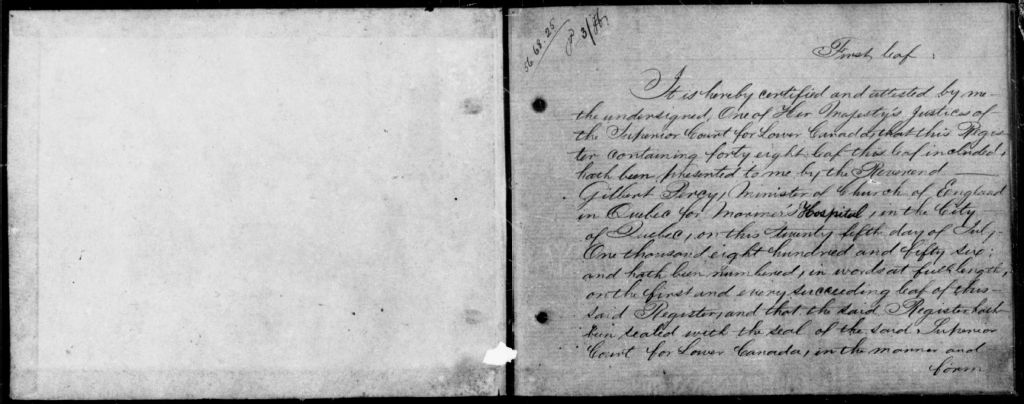 56 68.25
First leaf.
It is hereby certified and attested by me
the undersigned, One of Her Majesty's Justices of
the Superior Court for Lower Canada, that this Regis-
ter containing forty eight leaf this leaf included,
hath been presented to me by the Reverend
Gilbert Percy, Minister of Church of England
in Quebec for Mariner's Hospital, in the City
of Quebec, on this twenty fifth day of July,
One thousand eight hundred and fifty six;
and hath been numbered, in words at full length,
on the first and every succeeding leaf of this
said Register, and that the said Register hath
been sealed with the seal of the said Superior
Court for Lower Canada, in the manner and
form